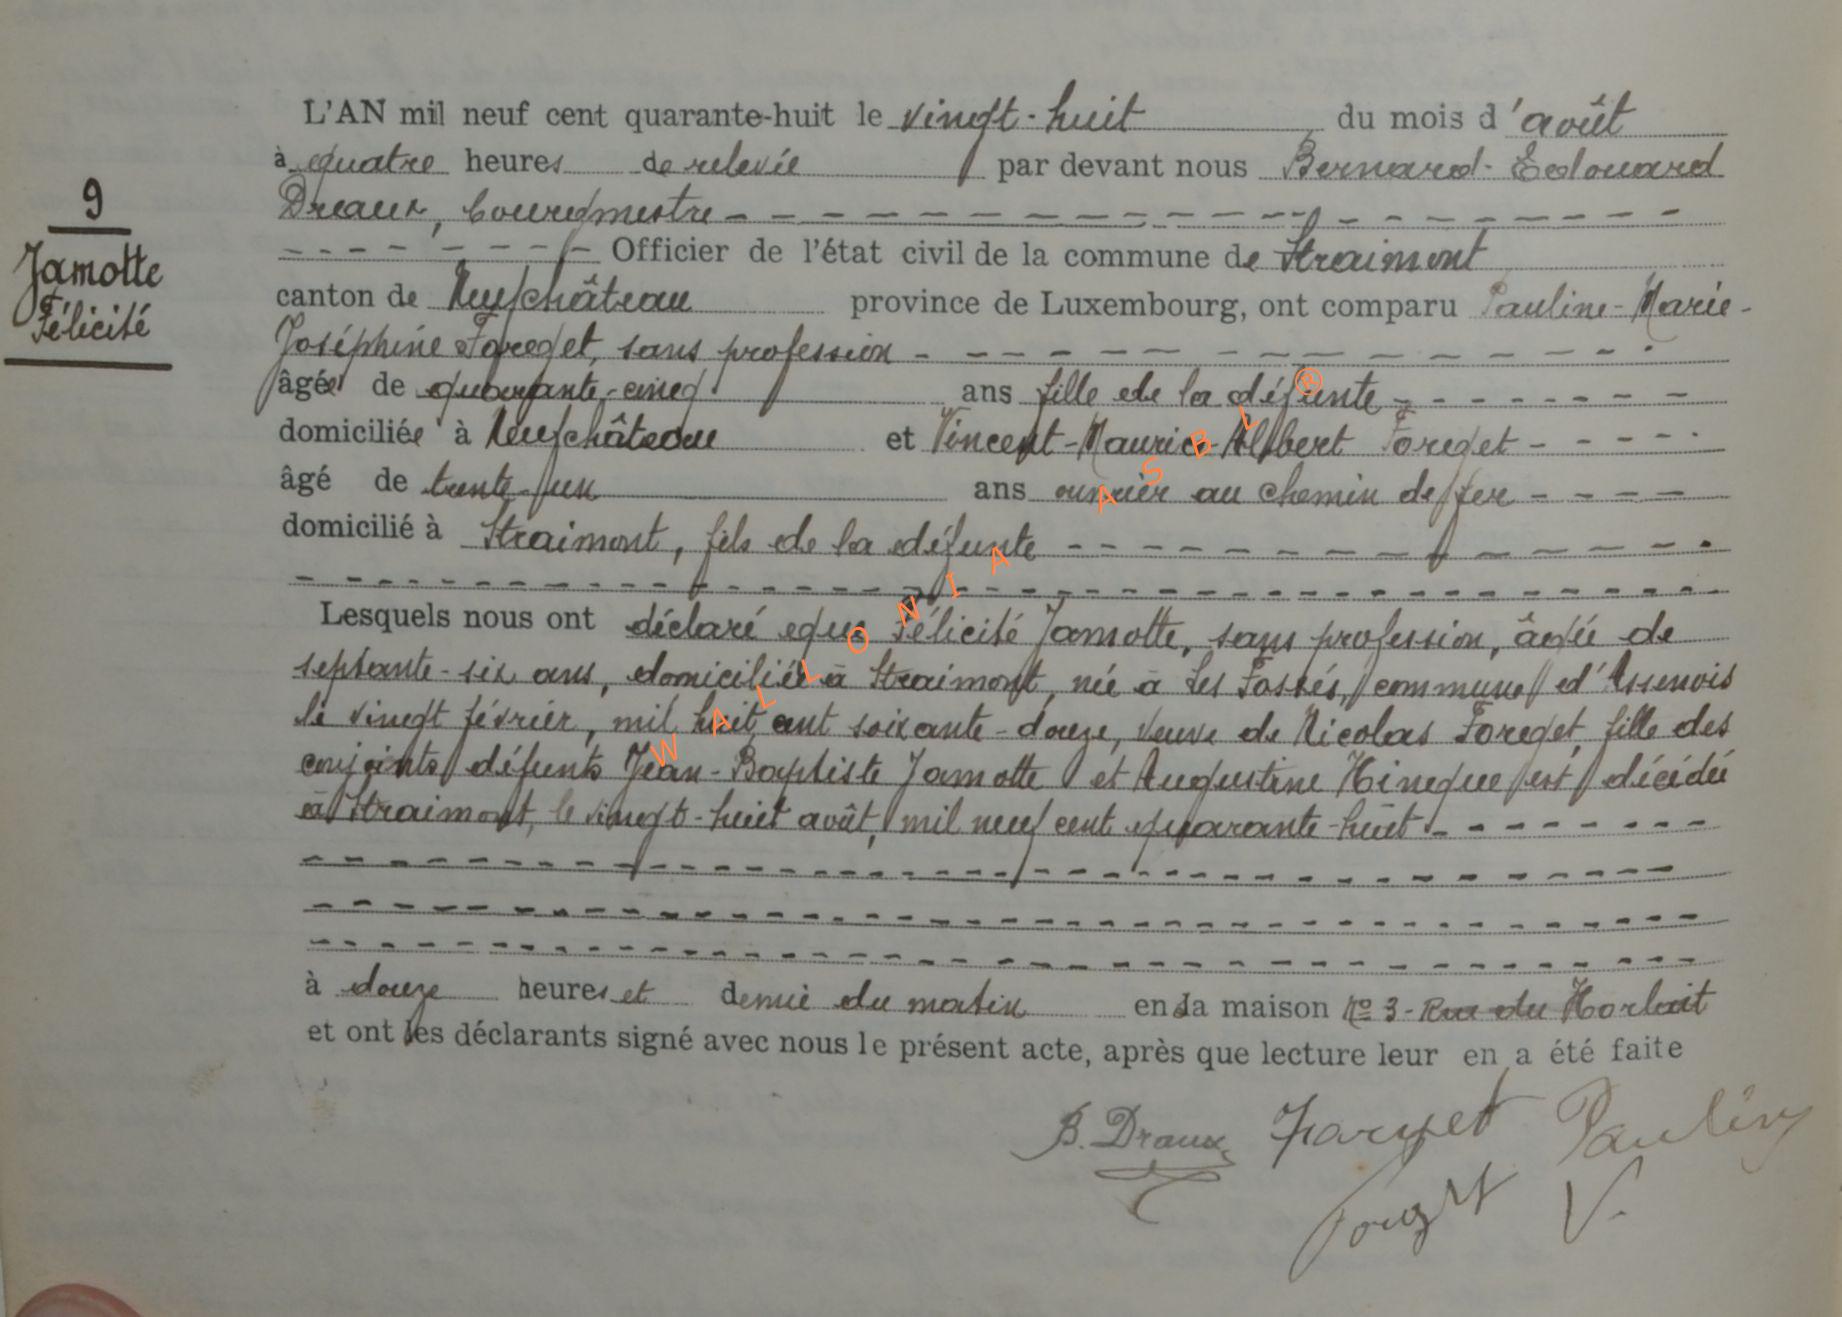 L'AN mil neuf cent quarante-huit le vingt-huit du mois d'août
à quatre heures de relevée par devant nous Bernard-Edouard
Draux, bourgmestre
Officier de l'état civil de la commune de Straimont
canton de Neufchâteau province de Luxembourg, ont comparu Pauline-Marie-
Joséphine Forget, sans profession
âgée de quarante-cinq ans fille de la défunte
domiciliée à Neufchâteau et Vincent-Maurice-Albert Forget
âgé de trente-un ans ouvrier au chemin de fer
domicilié à Straimont, fils de la défunte
Lesquels nous ont déclaré que Félicité Jamotte, sans profession, âgée de
septante-six ans, domiciliée à Straimont, née à Les Fossés, commune d'Assenois
le vingt février, mil huit cent soixante-douze, veuve de Nicolas Forget, fille des
conjoints défunts Jean-Baptiste Jamotte et Augustine Hinque est décédée
à Straimont, le vingt-huit août, mil neuf cent quarante-huit
à douze heures et demie du matin en la maison No 3-Rue du Horlait
et ont les déclarants signé avec nous le présent acte, après que lecture leur en a été faite
9
Jamotte
Félicité
B. Draux Forget Pauline
Forget V.
WALLONIA ASBL ®